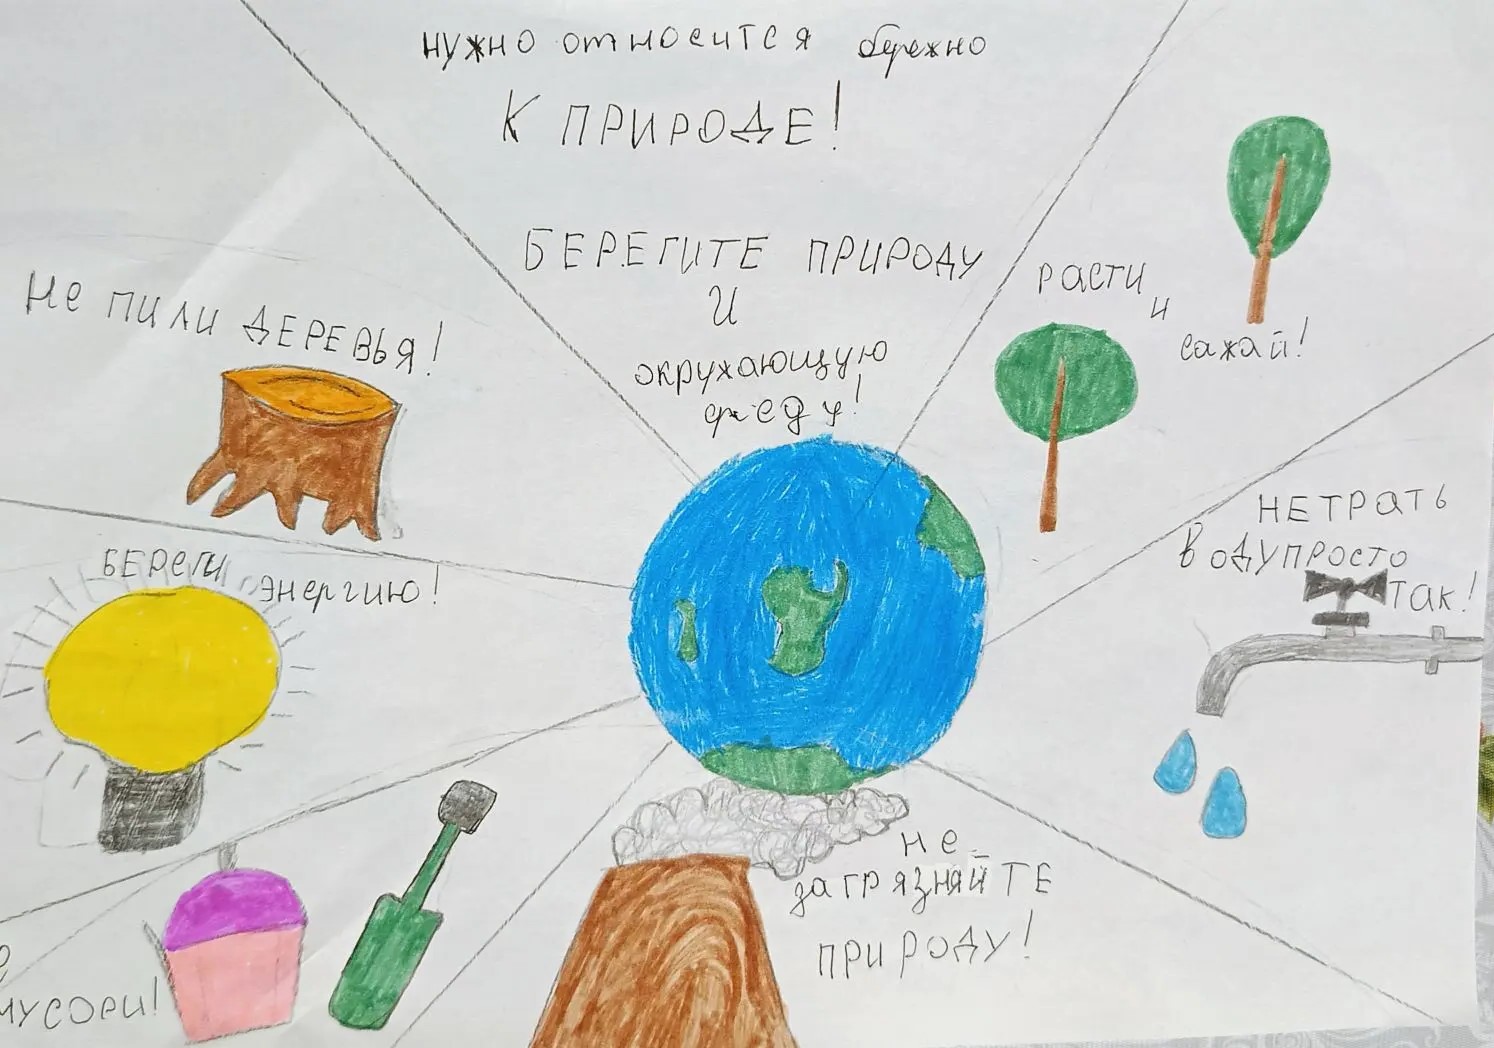 нужно относится бережно
К ПРИРОДЕ!
БЕРЕГИТЕ ПРИРОДУ
И
окружающую
среду!
Не ПИЛИ ДЕРЕВЬЯ!
РАСТИ
и
сажай!
НЕ ТРАТЬ
ВОДУ ПРОСТО
ТАК!
БЕРЕГИ ЭНЕРГИЮ!
не
загрязняйТЕ
ПРИРОДУ!
МУСОРИ!